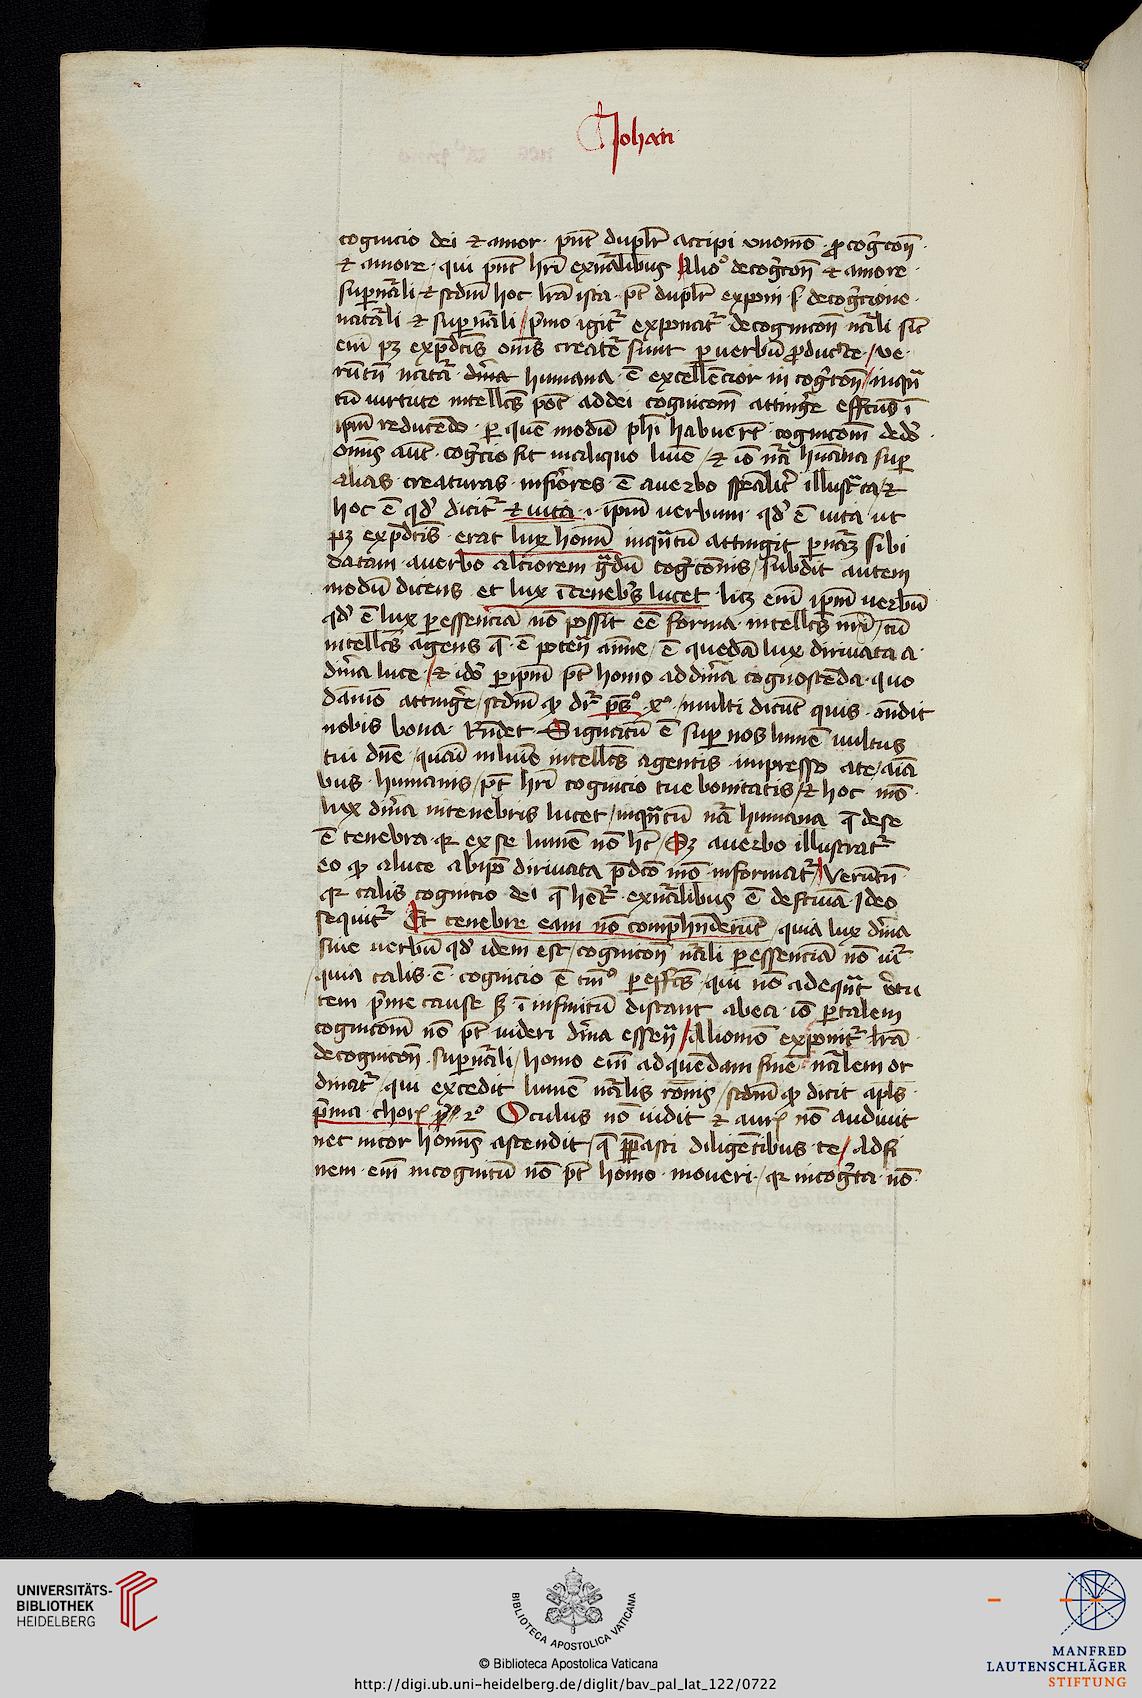 Johan
cognicio dei et amor · pn̄t duplr̄ accipi vnomō · ꝓ cogr̄con̄ ·
et amore · qui pn̄t hr̄i exnr̄alibus Alio° decogr̄con̄ et amore ·
supernr̄ali et scdm̄ hoc lr̄a ista · pt̄ duplr̄ exponi ſ decogr̄cione ·
nat̄ali et supernr̄ali / pr̄mo igitr̄ exponatr̄ decognicon̄ nr̄ali sic̄
em̄ pꝫ exp̄dcīs om̄s creatē sunt per verbū ꝓducte / ve ·
rūtn̄ natā · dīna humana · ē excellēcior in cogr̄con̄ / inqn̄
tū virtute intellcūs pōt addei cognicom̄ attingr̄e effcūs ī
ipm̄ reducēdo · per quē modū phī habuer̄t · cognicom̄ dedo ·
om̄is aut̄ · cogr̄cio fit inaliquo lumē / et iō nr̄a hūana super
alias creaturas · infior̄es · ē averbo spēalitr̄ illustr̄ata / et
hoc ē qd' dicitr̄ et vita · i · ipm̄ verbum · qd' ē vita ut
pꝫ exp̄dcīs · erat lux hom̄ inqn̄tū attingit per nr̄aꝫ sibi
datam · averbo alciorem gr̄dū cogr̄com̄is / subdit autem
modū dicens et lux ī tenebrīs lucet licꝫ em̄ ipm̄ verbū
qd' ē lux per essenciā nō possit eē forma · intellcūs nr̄i / tn̄
intellcūs agens q̄ · ē potenī anīe / ē quedā lux dirivata a ·
dīna luce / et ido per ipm̄ pt̄ homo ad dīna cognoscēda · quo
dāmō attingr̄e / scdm̄ ꝙ dr̄ ps̄° x° / multi dicūt quis · on̄dit
nobis bona · Rn̄det · Signatū ē super nos lumē vultus
tui dn̄e / quasi inlumē intellcūs agentis · impresso ate / aīa
bus · humanis / pt̄ hr̄i cognicio tue bonitatis / et hoc mō ·
lux dīna intenebris lucet / inqn̄tū nr̄a humana q̄ de se
ē tenebra · qꝛ ex se lumē nō hc̄ / Sꝫ averbo illustratr̄
eo ꝙ aluce abipō dirivata p̄dcō mō · informatr̄ / verūtn̄
qꝛ talis cognicio dei q̄ hetr̄ · exnr̄alibus ē defctiuā · Ideo
sequitr̄ Et tenebre eam nō comp̄hn̄derūt / quia lux dīna
siue verbū qd' idem est / cognicon̄ nr̄ali per essenciā nō vir̄
quia talis · ē · cognicio ē tm̄° per effcūs / qui nō adequāt v̄tu
tem pr̄me cause sꝫ ī infinitū distant abea · iō per talem
cognicom̄ nō pt̄ videri dīna essenī / Aliomō exponitr̄ lr̄a
decognicon̄ · supernr̄ali / homo em̄ adquendam finē · nr̄alem or
dinatr̄ / qui excedit lumē nr̄alis rōnis / scdm̄ ꝙ dicit apls̄ ·
pr̄ma · chor̄ · 2° Oculus nō vidit et auris nō audiuit
nec incor hom̄īs ascendit / q̄ p̄parasti diligentibus te / adfi
nem · em̄ incognitū nō pt̄ homo · moveri / qꝛ incogr̄ta · nō ·
UNIVERSITÄTS-
BIBLIOTHEK
HEIDELBERG
BIBLIOTECA APOSTOLICA VATICANA
© Biblioteca Apostolica Vaticana
http://digi.ub.uni-heidelberg.de/diglit/bav_pal_lat_122/0722
MANFRED
LAUTENSCHLÄGER
STIFTUNG